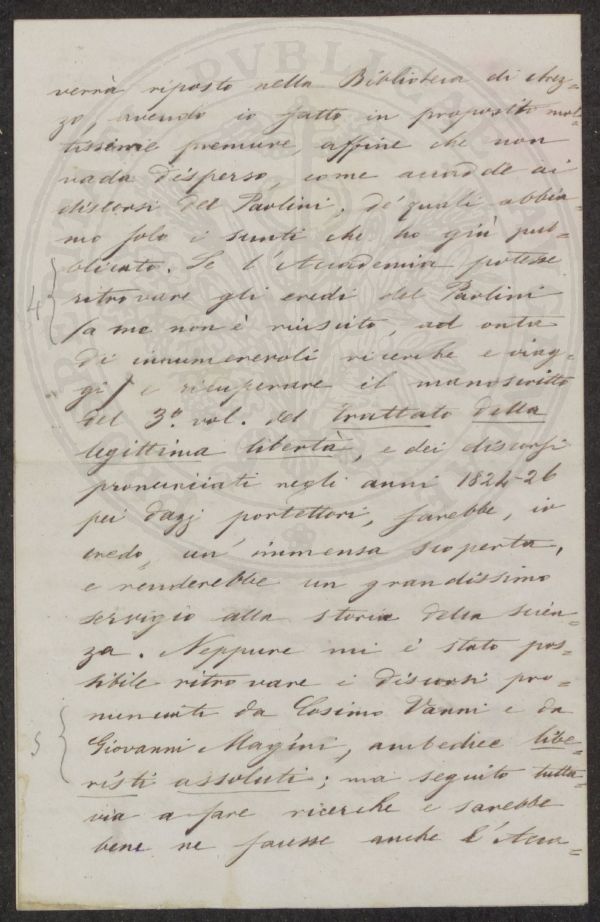 verrà riposto nella Biblioteca di Arez=
zo, avendo io fatto in proposito mol=
tissime premure, affine che non
vada disperso, come accadde ai
discorsi del Paolini, de' quali abbia=
mo solo i sunti che ho già pub=
blicato. Se l'Accademia potesse
4 ritrovare gli eredi del Paolini
(a me non è riuscito, ad onta
di innumerevoli ricerche e viag=
gi) e ricuperare il manoscritto
del 3º vol. del trattato della
legittima libertà, e dei discorsi
pronunciati negli anni 1824-26
pei dazj portettori, farebbe, io
credo, un' immensa scoperta,
e renderebbe un grandissimo
servigio alla storia della scien=
za. Neppure mi è stato pos=
sibile ritrovare i discorsi pro=
nunciati da Cosimo Vanni e da
5 Giovanni Magini, ambedue libe=
risti assoluti; ma seguito tutta=
via a fare ricerche e sarebbe
bene ne facesse anche l'Acca=